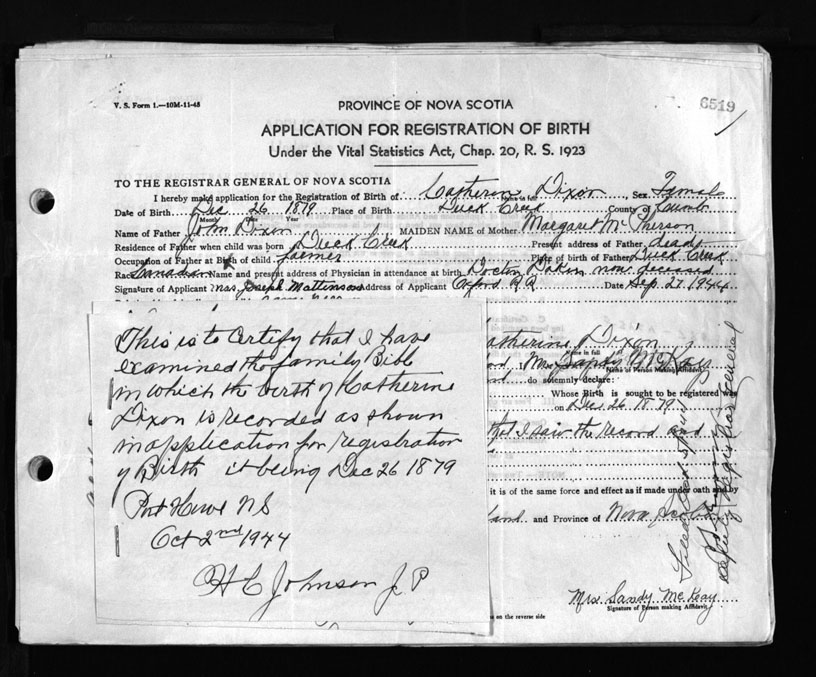 V. S. Form 1.—10M-11-43
6519
PROVINCE OF NOVA SCOTIA
APPLICATION FOR REGISTRATION OF BIRTH
Under the Vital Statistics Act, Chap. 20, R. S. 1923
TO THE REGISTRAR GENERAL OF NOVA SCOTIA
I hereby make application for the Registration of Birth of Catherine Dixon Sex Female
Name in full
Date of Birth Dec 26 1879 Place of Birth Duck Creek County of Cumb
Month Date Year
Name of Father John Dixon MAIDEN NAME of Mother Margaret McPherson
Residence of Father when child was born Duck Creek Present address of Father dead
Occupation of Father at Birth of child farmer Place of birth of Father Duck Creek
Race Canadian Name and present address of Physician in attendance at birth Doctor now deceased
Signature of Applicant Mrs. Joseph Mattinson Address of Applicant Oxford R.R. Date Sep. 27 1944
This is to Certify that I have
examined the family Bible
in which the birth of Katherine
Dixon is recorded as shown
in application for registration
of Birth it being Dec 26 1879
Port Howe NS
Oct 2nd 1944
H C Johnson J P
atherine Dixon
Name in full
I Mrs Sandy McKay
Name of Person Making Affidavit
do solemnly declare:
Whose Birth is sought to be registered was
on Dec 26 1879
that I saw the record and
it is of the same force and effect as if made under oath and by
and Province of Nova Scotia
Mrs Sandy McKay
Signature of Person making Affidavit
on the reverse side
Deputy Registrar General